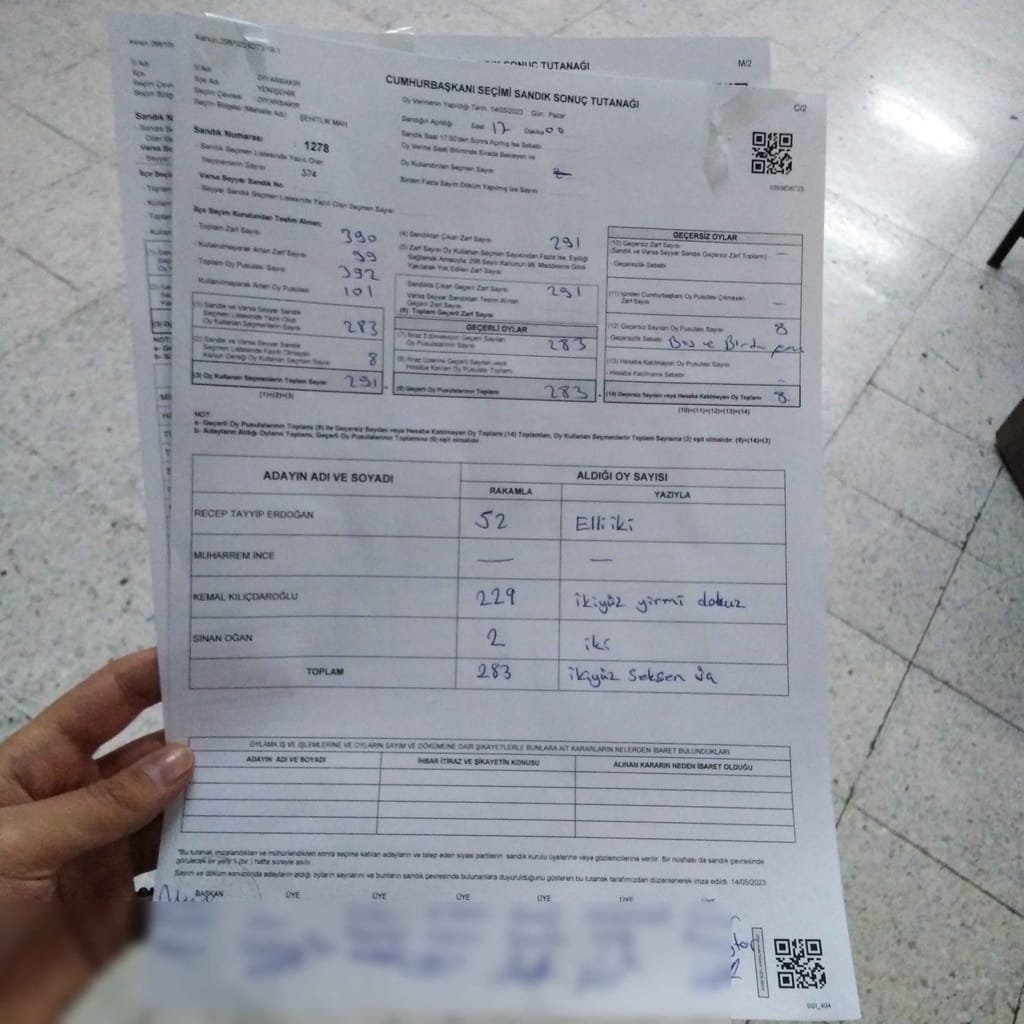 SONUÇ TUTANAĞI
M/2
CUMHURBAŞKANI SEÇİMİ SANDIK SONUÇ TUTANAĞI
C/2
İli Adı : DİYARBAKIR
İlçe Adı : YENİŞEHİR
Seçim Çevresi : DİYARBAKIR
Seçim Bölgesi (Mahalle Adı) : ŞEHİTLİK MAH
Sandık Numarası : 1278
Sandık Seçmen Listesinde Yazılı Olan
Seçmenlerin Sayısı : 374
Varsa Seyyar Sandık No
Seyyar Sandık Seçmen Listesinde Yazılı Olan Seçmen Sayısı
Oy Vermenin Yapıldığı Tarih: 14/05/2023 Gün: Pazar
Sandığın Açıldığı Saat 17 Dakika 00
Sandık Saat 17.00'den Sonra Açılmış İse Sebebi
Oy Verme Saati Bitiminde Sırada Bekleyen ve
Oy Kullandırılan Seçmen Sayısı
Birden Fazla Sayım Döküm Yapılmış İse Sayısı
İlçe Seçim Kurulundan Teslim Alınan;
Toplam Zarf Sayısı 390
Kullanılmayarak Artan Zarf Sayısı 99
Toplam Oy Pusulası Sayısı 392
Kullanılmayarak Artan Oy Pusulası 101
(1) Sandık ve Varsa Seyyar Sandık
Seçmen Listesinde Yazılı Olup
Oy Kullanan Seçmenlerin Sayısı 283
(2) Sandık ve Varsa Seyyar Sandık
Seçmen Listesinde Kayıtlı Olmayan
Kanun Gereği Oy Kullanan Seçmen Sayısı 8
(3) Oy Kullanan Seçmenlerin Toplam Sayısı 291
(1)+(2)=(3)
(4) Sandıktan Çıkan Zarf Sayısı 291
(5) Zarf Sayısı Oy Kullanan Seçmen Sayısından Fazla İse, Eşitliği
Sağlamak Amacıyla, 298 Sayılı Kanunun 98. Maddesine Göre
Yakılarak Yok Edilen Zarf Sayısı
Sandıkta Çıkan Geçerli Zarf Sayısı 291
Varsa Seyyar Sandıktan Teslim Alınan
Geçerli Zarf Sayısı
(6) Toplam Geçerli Zarf Sayısı
GEÇERLİ OYLAR
(7) İtiraz Edilmeksizin Geçerli Sayılan
Oy Pusulasının Sayısı 283
(8) İtiraz Üzerine Geçerli Sayılan veya
Hesaba Katılan Oy Pusulası Toplamı
(9) Geçerli Oy Pusulalarının Toplamı 283
GEÇERSİZ OYLAR
(10) Geçersiz Zarf Sayısı
(Sandık ve Varsa Seyyar Sandık Geçersiz Zarf Toplamı) —
Geçersizlik Sebebi
(11) İçinden Cumhurbaşkanı Oy Pusulası Çıkmayan
Zarf Sayısı —
(12) Geçersiz Sayılan Oy Pusulası Sayısı 8
Geçersizlik Sebebi Boş ve
(13) Hesaba Katılmayan Oy Pusulası Sayısı
Hesaba Katılmama Sebebi
(14) Geçersiz Sayılan veya Hesaba Katılmayan Oy Toplamı 8
(10)+(11)+(12)+(13)=(14)
NOT:
a- Geçerli Oy Pusulalarının Toplamı (9) ile Geçersiz Sayılan veya Hesaba Katılmayan Oy Toplamı (14) Toplamları, Oy Kullanan Seçmenlerin Toplam Sayısına (3) eşit olmalıdır. (9)+(14)=(3)
b- Adayların Aldığı Oyların Toplamı, Geçerli Oy Pusulalarının Toplamına (9) eşit olmalıdır
ADAYIN ADI VE SOYADI ALDIĞI OY SAYISI
RAKAMLA YAZIYLA
RECEP TAYYİP ERDOĞAN 52 Elli iki
MUHARREM İNCE — —
KEMAL KILIÇDAROĞLU 229 ikiyüz yirmi dokuz
SİNAN OĞAN 2 iki
TOPLAM 283 ikiyüz Seksen üç
OYLAMA İŞ VE İŞLEMLERİNE VE OYLARIN SAYIM VE DÖKÜMÜNE DAİR ŞİKAYETLERLE BUNLARA AİT KARARLARIN NELERDEN İBARET BULUNDUKLARI
ADAYIN ADI VE SOYADI İHBAR İTİRAZ VE ŞİKAYETİN KONUSU ALINAN KARARIN NEDEN İBARET OLDUĞU
*Bu tutanak, imzalandıktan ve mühürlendikten sonra seçime katılan adayların ve talep eden siyasi partilerin sandık kurulu üyelerine veya gözlemcilerine verilir. Bir nüshası da sandık çevresinde
görülecek bir yere 1 (bir) hafta süreyle asılır.
Sayım ve döküm sonucunda adayların aldığı oyların sayılarını ve bunların sandık çevresinde bulunanlara duyurulduğunu gösteren bu tutanak tarafımızdan düzenlenerek imza edildi. 14/05/2023
BAŞKAN ÜYE ÜYE ÜYE ÜYE ÜYE ÜYE